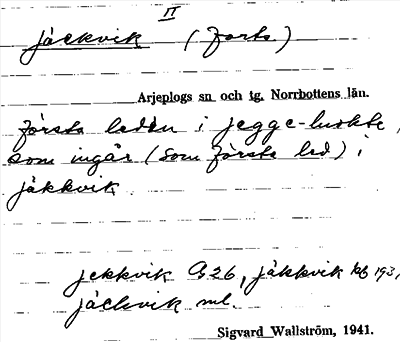 II
jäckvik (forts)
Arjeplogs sn och tg, Norrbottens län.
första leden i jegge-luokte,
som ingår (som första led) i
jäkkvik.
jekkvik G 26, jäkkvik kb 193,
jäckvik ml.
Sigvard Wallström, 1941.